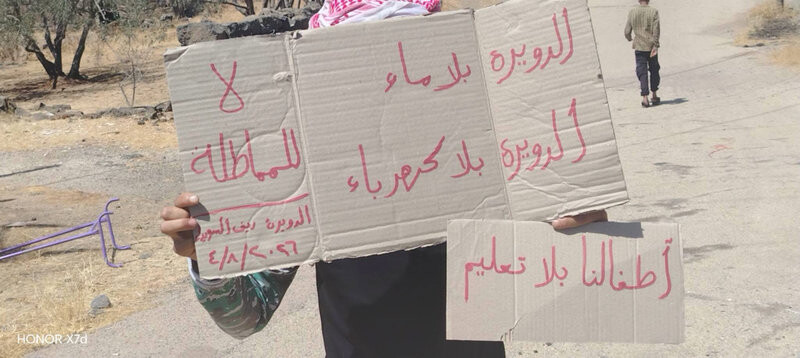 الدويرة بلا ماء
الدويرة بلا كهرباء
لا
للمماطلة
الدويرة ريف السويداء
٤/٨/٢٠٢٦
أطفالنا بلا تعليم
HONOR X7d